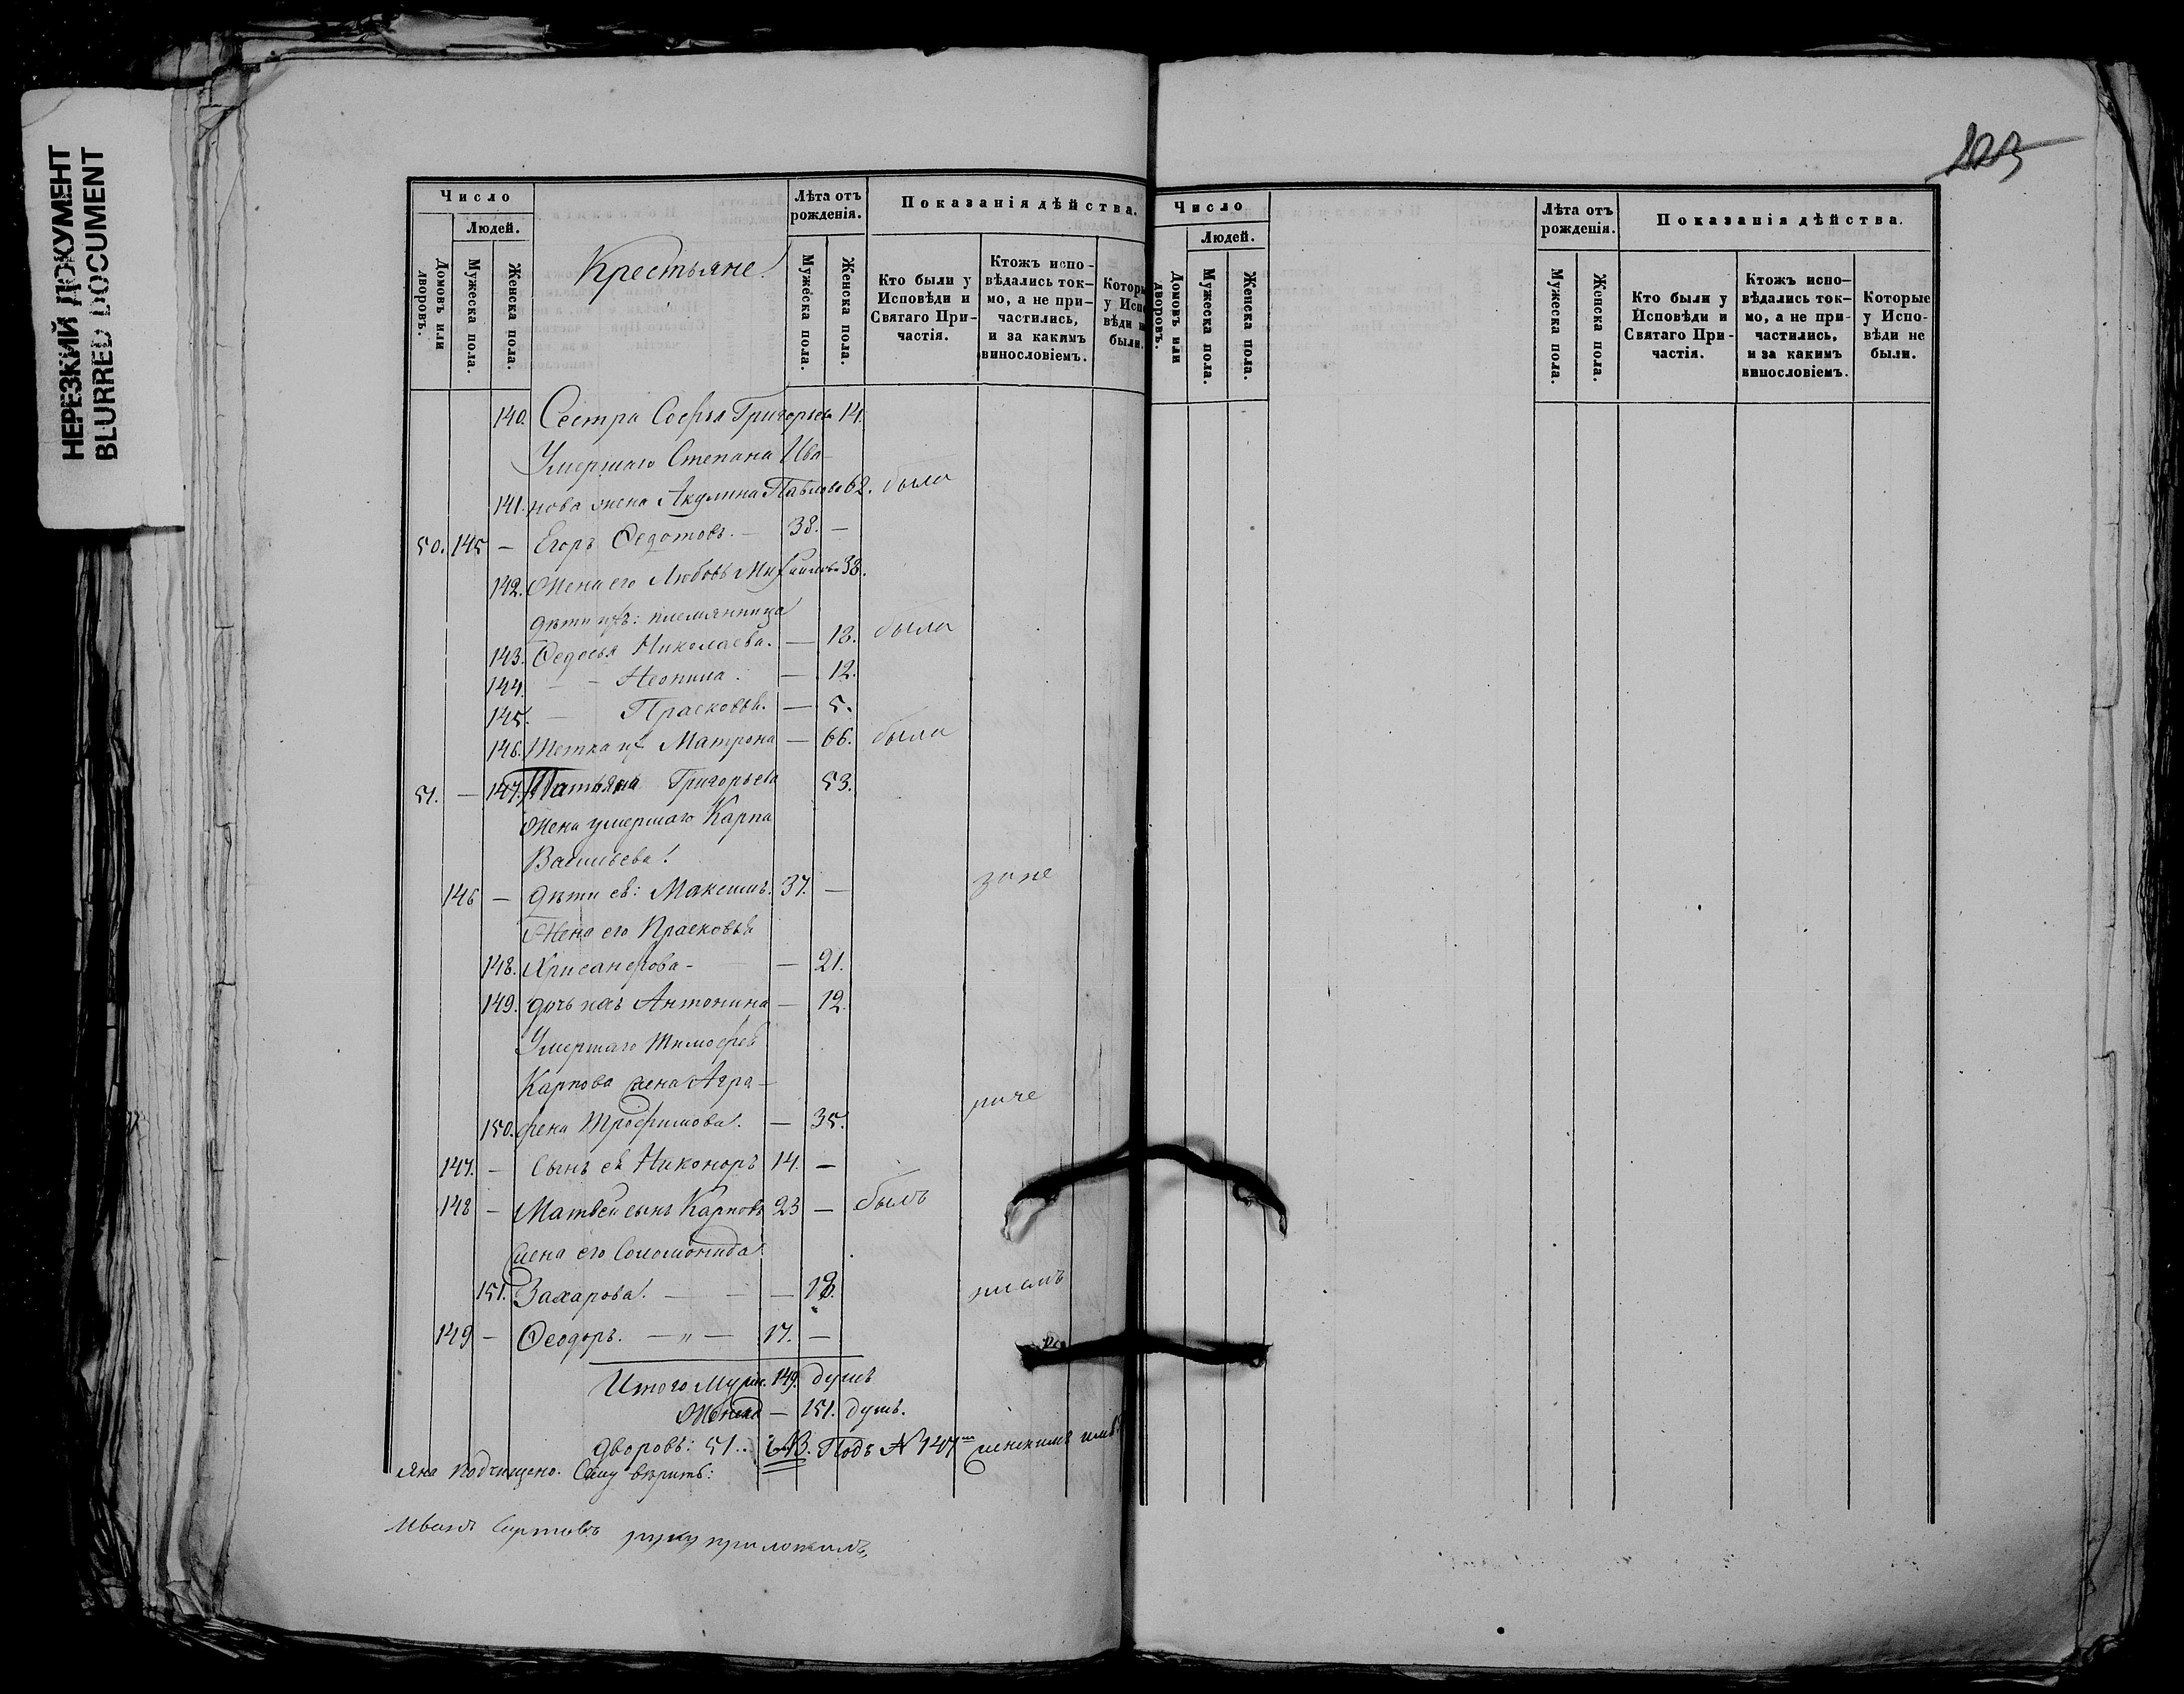 НЕРЕЗКИЙ ДОКУМЕНТ
BLURRED DOCUMENT
Число
Людей.
Домовъ или дворовъ.
Мужеска пола.
Женска пола.
Крестьяне.
Лѣта отъ рожденія.
Мужеска пола.
Женска пола.
Показанія дѣйства.
Кто были у Исповѣди и Святаго При-
частія.
Ктожъ испо-
вѣдались ток-
мо, а не при-
частились,
и за какимъ
винословіемъ.
Которы
у Испо
вѣди н
были.
140. Сестра Софья Григорьева 14.
Умершаго Степана Ива-
141. нова жена Акулина Павлова 62. была
50. 145 — Егоръ Федотовъ. — 38. —
142. Жена его Любовь Михайлова 38.
дѣти ихъ: племянница
143. Федосья Николаева. — 13. была
144. — — Неонила. — 12.
145. — Прасковья. — 5.
146. Тетка их Матрона — 66. была
51. — 147. Татьяна Григорьева 53.
Жена умершаго Карпа
Васильева.
146 — дѣти ея: Максимъ. 37. —
Жена его Прасковья
148. Хрисанфова — — 21.
149. дочь ихъ Антонина — 12.
Умершаго Тимофея
Карпова жена Агра-
150. фена Трофимова. — 35.
147. — Сынъ ея Никоноръ 14. —
148 — Матвей сынъ Карповъ 23 — былъ
Жена его Соломонида
151. Захарова. — — — 18.
149 — Феодоръ. — „ — 17. —
Итого Муж. 149. душъ
Женска — 151. душъ.
дворовъ: 51.. Подъ № 147 женскимъ имя
яна подчищено. Сему вѣрить:
Иванъ руку приложилъ
Число
Людей.
Домовъ или дворовъ.
Мужеска пола.
Женска пола.
Лѣта отъ рожденія.
Мужеска пола.
Женска пола.
Показанія дѣйства.
Кто были у Исповѣди и Святаго При-
частія.
Ктожъ испо-
вѣдались ток-
мо, а не при-
частились,
и за какимъ
винословіемъ.
Которые
у Испо-
вѣди не
были.